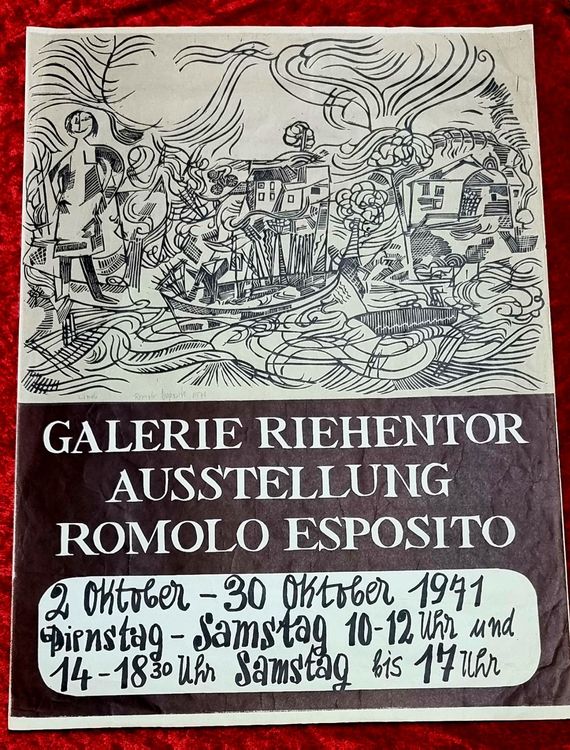 Romolo Esposito 1971
GALERIE RIEHENTOR
AUSSTELLUNG
ROMOLO ESPOSITO
2 Oktober – 30 Oktober 1971
Dienstag – Samstag 10-12 Uhr und
14 - 18 30 Uhr Samstag bis 17 Uhr